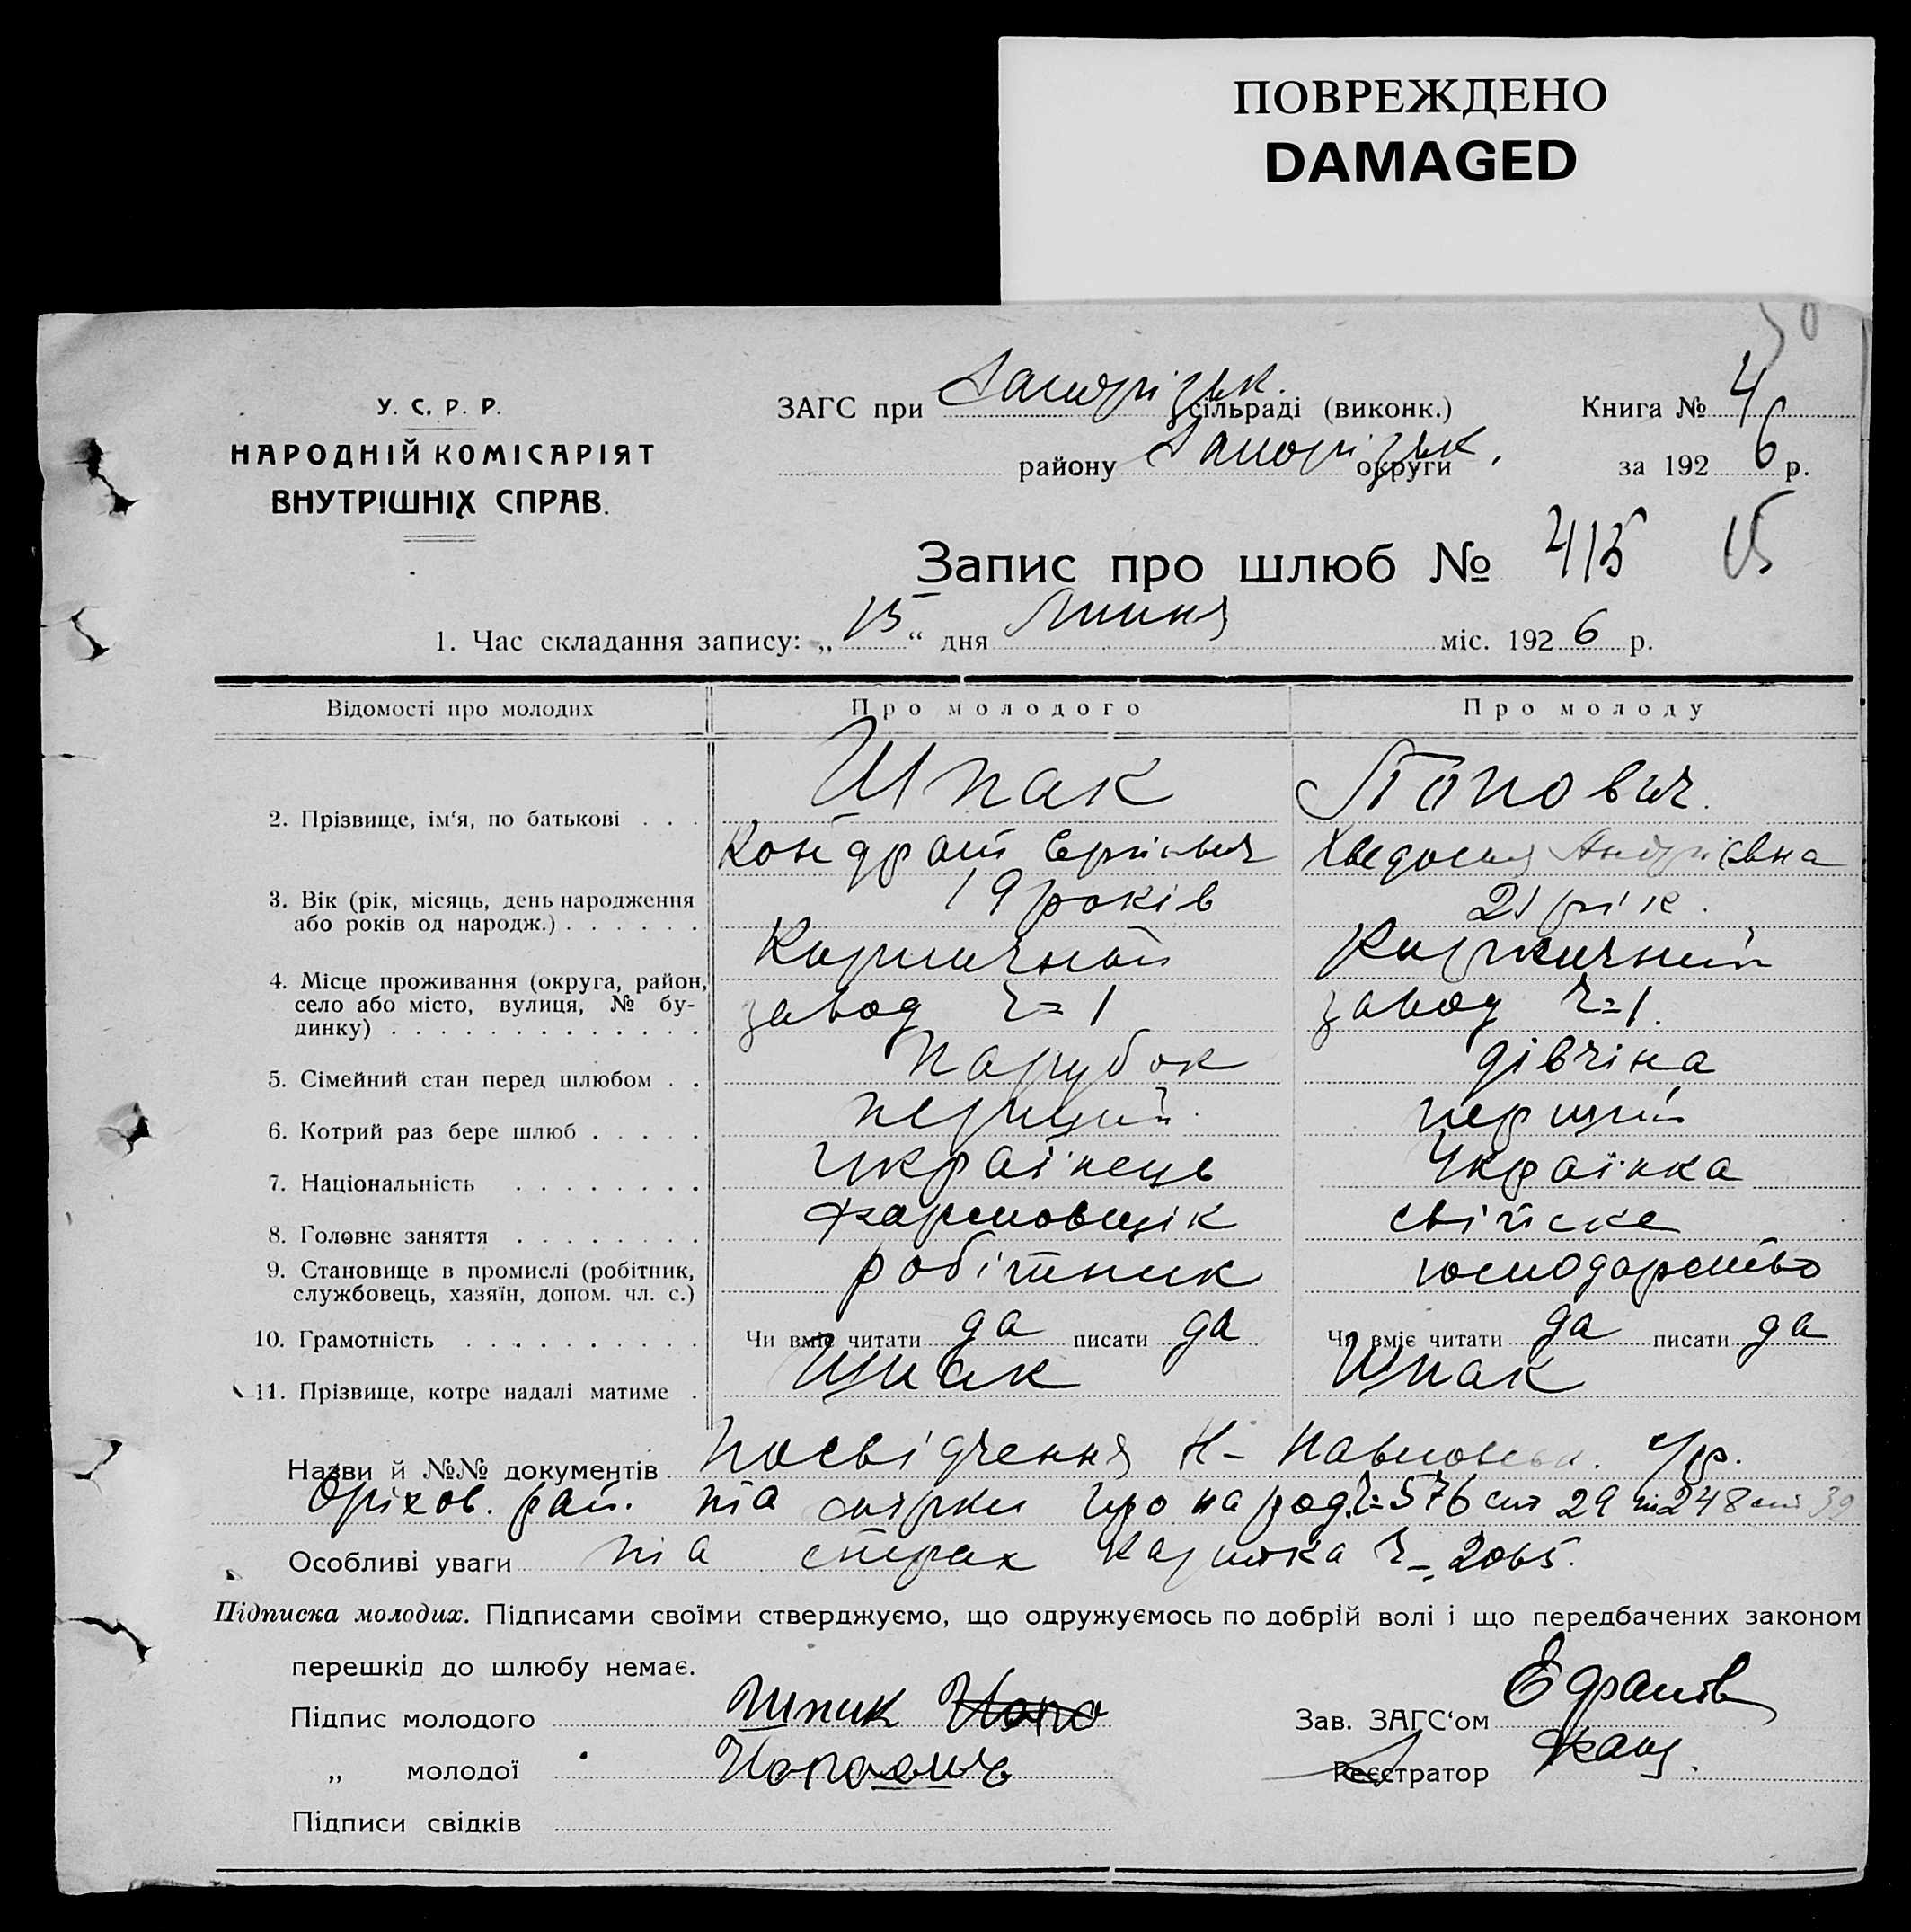 ПОВРЕЖДЕНО
DAMAGED
У. С. Р. Р.
НАРОДНІЙ КОМІСАРІЯТ
ВНУТРІШНІХ СПРАВ.
ЗАГС при Запорізьк. сільраді (виконк.) Книга № 4
району Запорізьк. округи за 1926 р.
Запис про шлюб № 415 15
1. Час складання запису: „15“ дня Липня міс. 1926 р.
Відомості про молодих Про молодого Про молоду
2. Прізвище, ім‘я, по батькові Шпак Попович.
Кондрат Сергієвич Хведосия Андріївна
3. Вік (рік, місяць, день народження або років од народж.) 19 років 21 рік.
4. Місце проживання (округа, район, село або місто, вулиця, № будинку) Кирпичний завод ч=1 Кирпичний завод ч=1.
5. Сімейний стан перед шлюбом Парубок дівчіна
6. Котрий раз бере шлюб перший перший
7. Національність Українець Українка
8. Головне заняття формовщік свійске
9. Становище в промислі (робітник, службовець, хазяїн, допом. чл. с.) робітник господарство
10. Грамотність Чи вміє читати да писати да Чи вміє читати да писати да
11. Прізвище, котре надалі матиме Шпак Шпак
Назви й №№ документів Посвідчення Н-Павловськ. с/р.
Оріхов. рай. та про народ. ч=576 29 248
Особливі уваги та страх картка ч= 2065.
Підписка молодих. Підписами своїми стверджуємо, що одружуємось по добрій волі і що передбачених законом
перешкід до шлюбу немає.
Підпис молодого Шпак Попо Зав. ЗАГС‘ом
„ молодої Попович Реєстратор
Підписи свідків